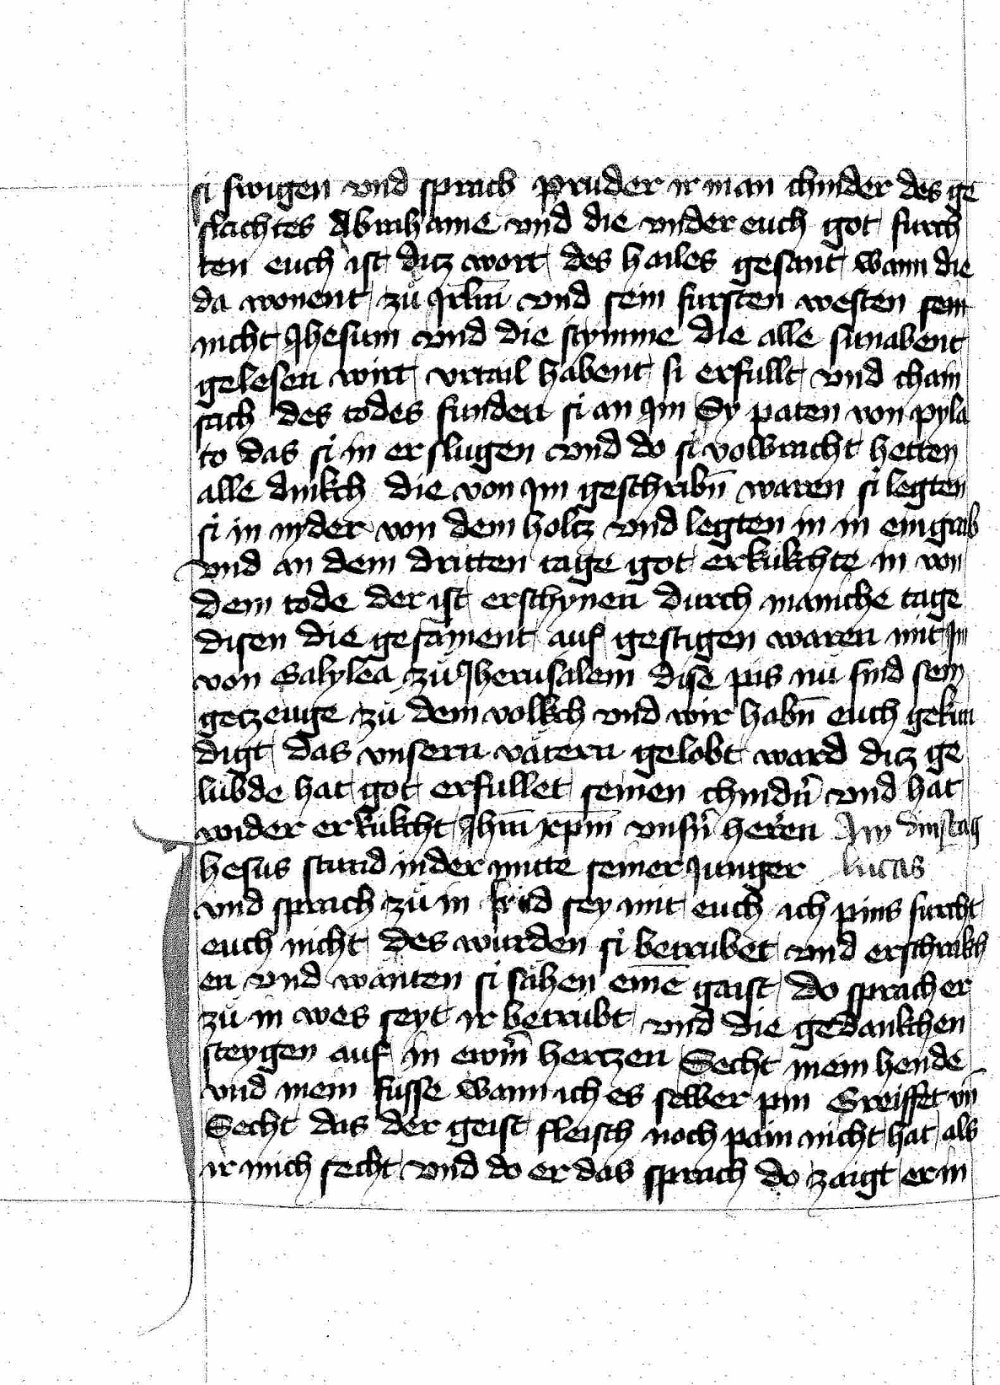 si swigen vnd sprach pruder ir man chinder des ge
slachtes Abrahame vnd die vnder euch got furch
ten euch ist ditz wort des hailes gesant wann die
da wonent zů Jrlm̄ vnd sein fursten westen sein
nicht Jhesum vnd die stymme die alle sunabent
gelesen wirt vrtail habent si erfullt vnd chain
sach des todes funden si an Jm Sy paten von pyla
to das si in erslugen vnd do si volbracht hetten
alle dinkch die von Jm geschribn̄ waren si legten
si in nyder von dem holtz vnd legten in in ein grab
vnd an dem dritten tage got erkukchte in von
dem tode der ist erschynen durch maniche tage
disen die gesament auf gestigen waren mit Jm
von Galylea zů Jherusalem dise pis nu sind sein
getzeuge zu dem volkch vnd wir habn̄ euch gekun
digt das vnsern vätern gelobt ward ditz ge
lubde hat got erfullet seinen chindn̄ vnd hat
wider erkukcht Jhm̄ xpm̄ vnsn̄ heren Am dinstag
Jhesus stund in der mitte seiner Junger lucas
vnd sprach zů in frid sey mit euch ich pins furcht
euch nicht des wurden si betrubet vnd erschrakch
en vnd wanten si sähen einē gaist do sprach er
zů in wes seyt ir betrubt vnd die gedankchen
steygen auf in ewrn̄ hertzen Secht mein hende
vnd mein fusse wann ich es selber pin Greiffet vn̄
Secht das der geist fleisch noch pain nicht hat als
ir mich secht vnd do er das sprach do zaigt er in